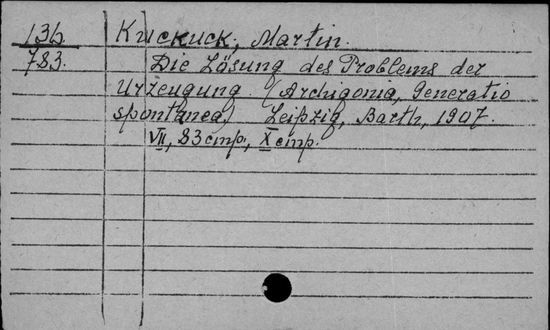 13b Kuckuck, Martin.
783. Die Lösung des Problems der
Urzeugung (Archigonia, Generatio
spontanea) Leipzig, Barth, 1907.
VII, 83 стр., X стр.